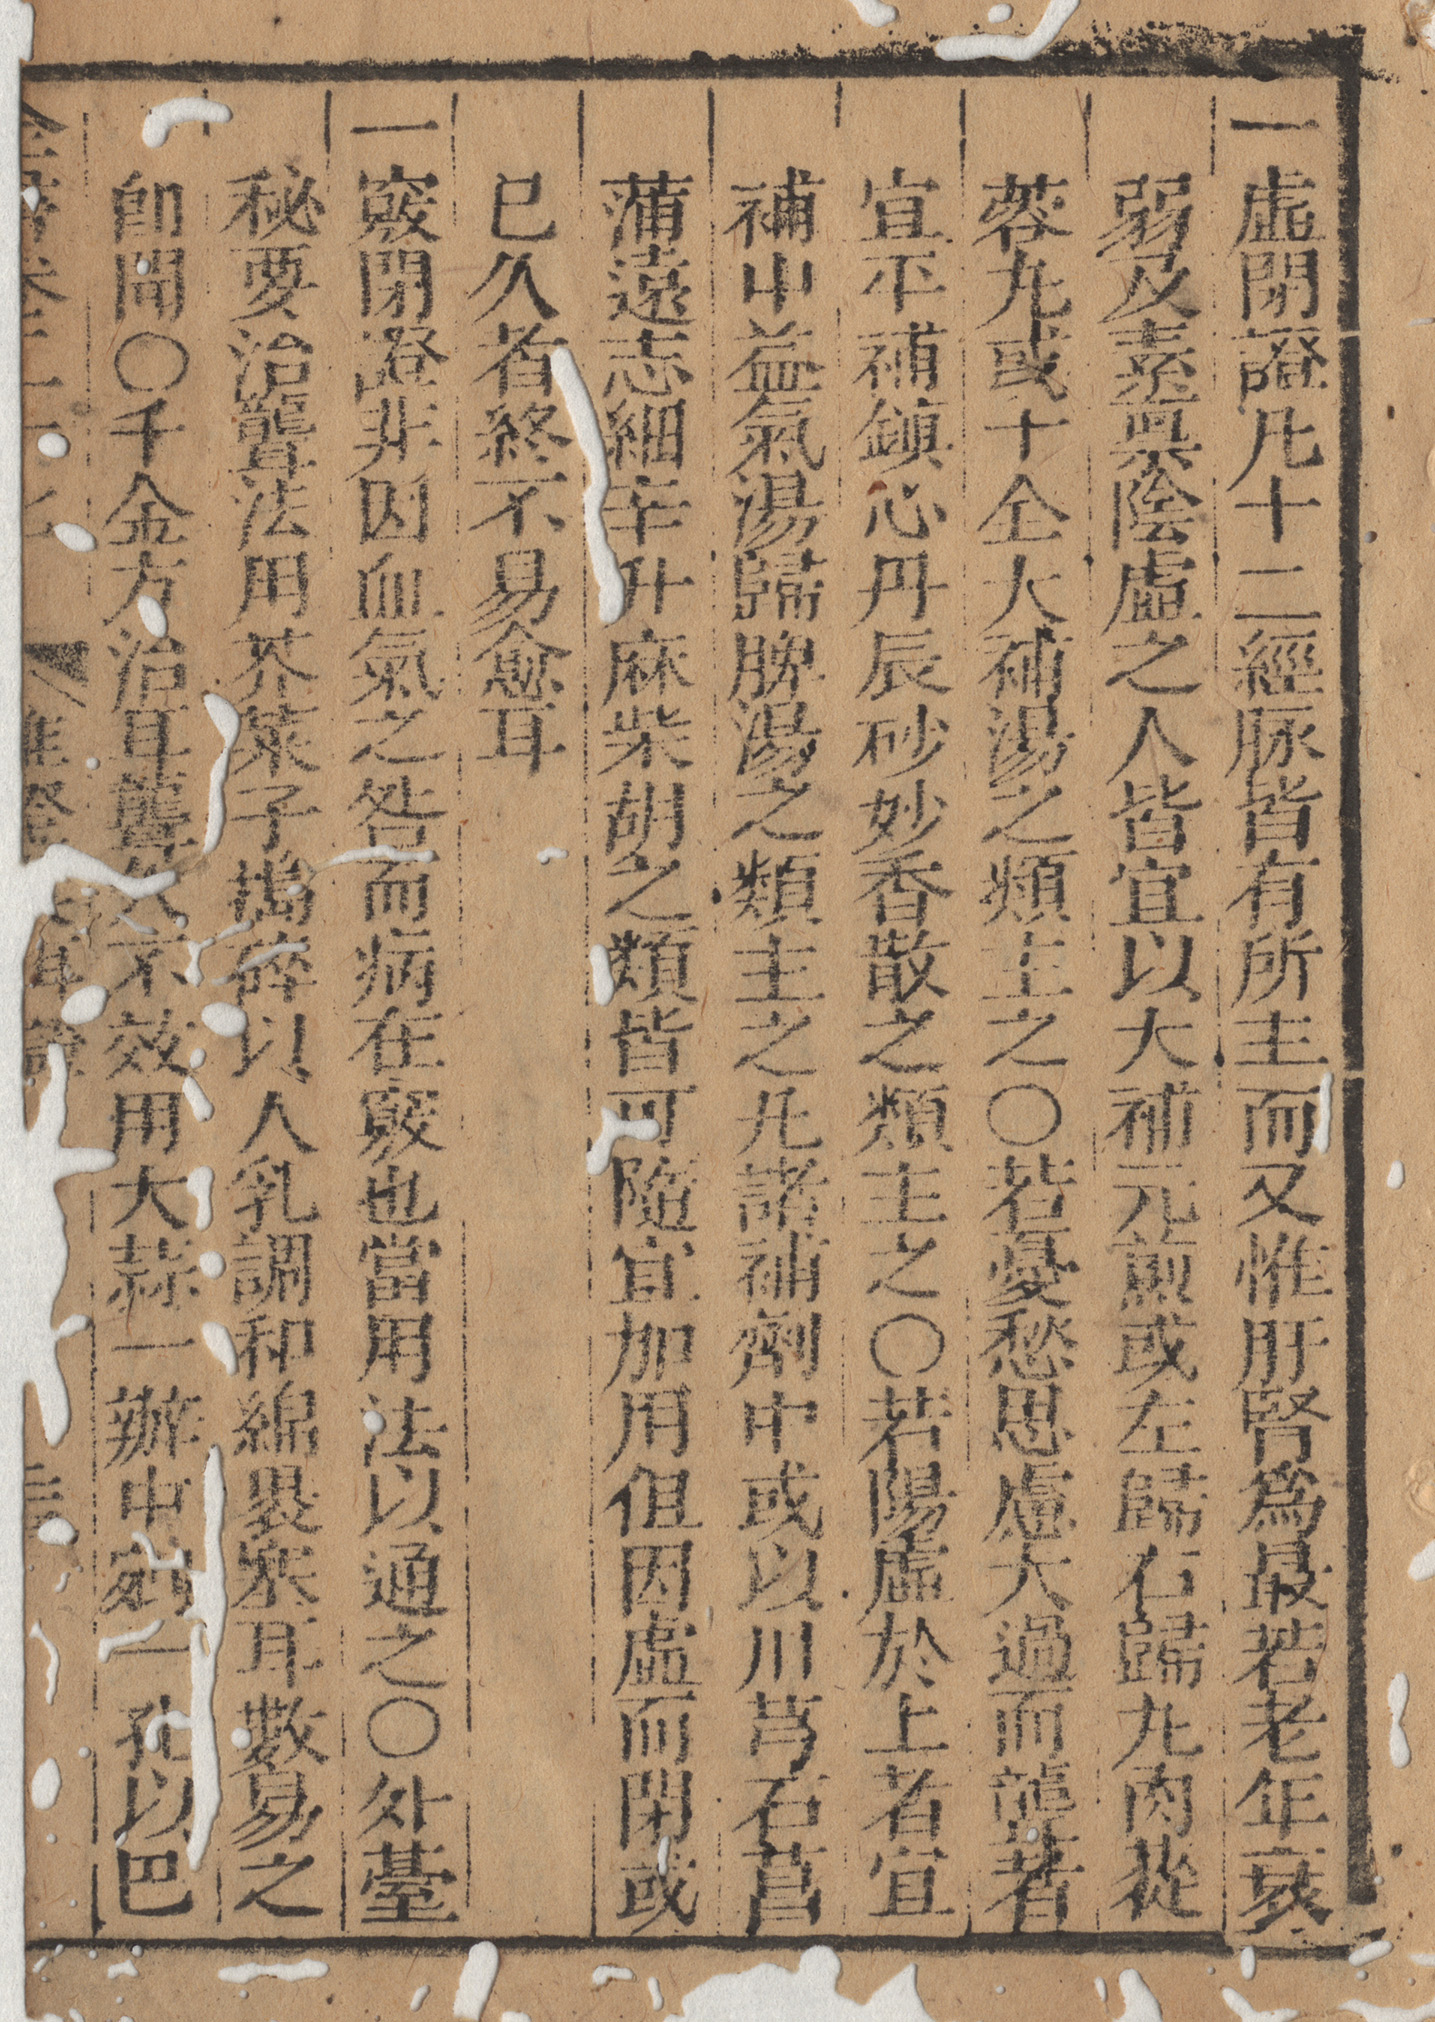 一虛閉證凡十二經脉皆有所主而又惟肝腎爲最若老年衰
弱及素稟陰虛之人皆宜以大補元煎或左歸右歸丸肉蓯
蓉丸或十全大補湯之類主之○若憂愁思慮太過而聾者
宜平補鎮心丹辰砂妙香散之類主之○若陽虛於上者宜
補中益氣湯歸脾湯之類主之凡諸補劑中或以川芎石菖
蒲遠志細辛升麻柴胡之類皆可隨宜加用但因虛而閉或
已久者終不易愈耳
一竅閉證非因血氣之咎而病在竅也當用法以通之○外臺
秘要治聾法用芥菜子搗碎以人乳調和綿裹塞耳數易之
卽聞○千金方治耳聾久不效用大蒜一瓣中剜一孔以巴